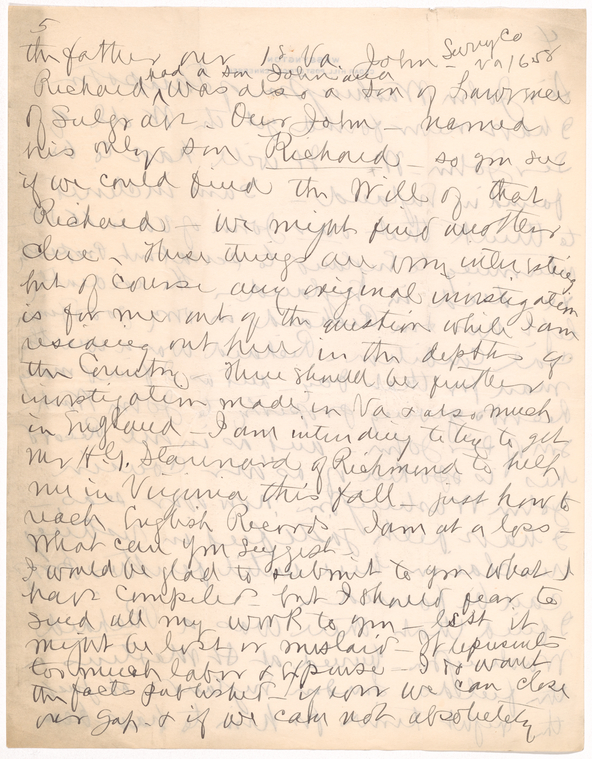 5
the father our 1st Va John - Surry Co
Va 1658
Richard, had a son John and was also a son of Lawrence
of Sulgrave. Our John - named
his only son Richard - so you see
if we could find the Will of that
Richard - we might find another
clue. These things are very interesting
but of course any original investigation
is for me out of the question while I am
residing out here in the depths of
the Country. There should be further
investigation made in Va & also much
in England - I am intending to try to get
Mr. H.G. Stannard of Richmond to help
me in Virginia this fall - just how to
reach English Records - I am at a loss -
What can you suggest.
I would be glad to submit to you what I
have compiled - but I should fear to
send all my work to you - lest it
might be lost or mislaid - It represents
too much labor & expense - I do want
the facts published if ever we can close
our gap. & if we can not absolutely